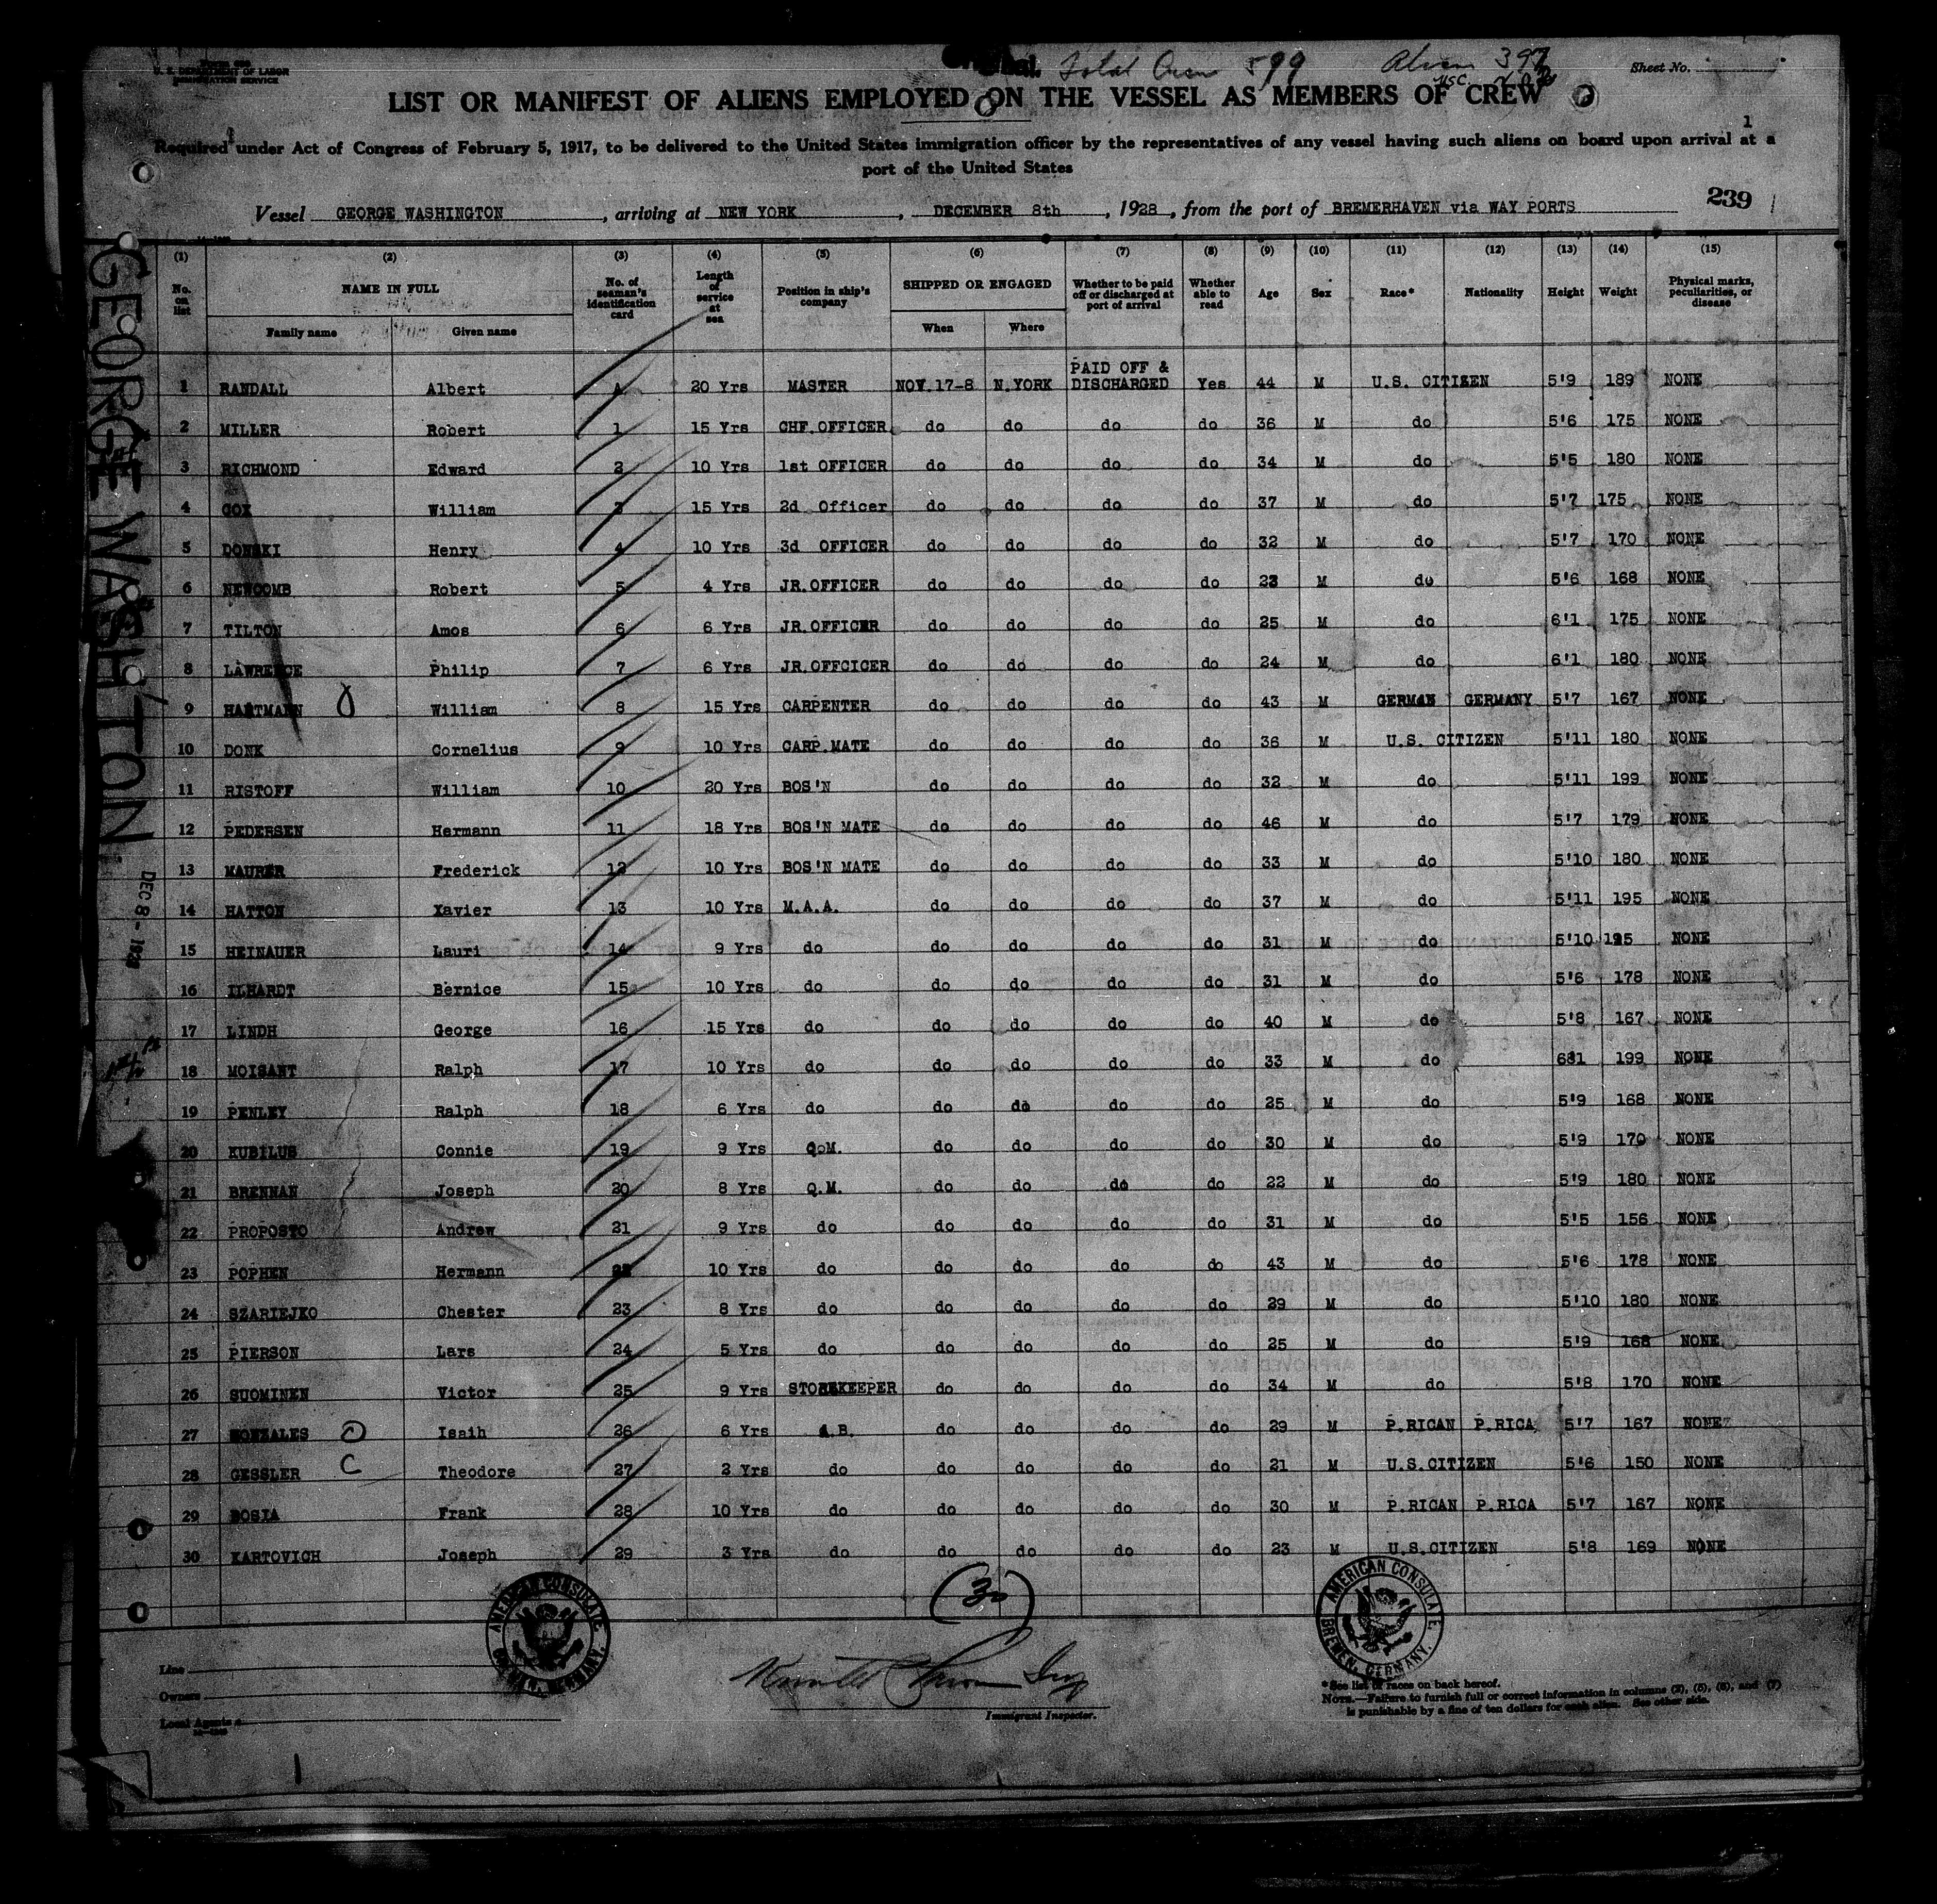 U. S. DEPARTMENT OF LABOR
IMMIGRATION SERVICE
Total Crew 599
Alien 397
USC
Sheet No.
LIST OR MANIFEST OF ALIENS EMPLOYED ON THE VESSEL AS MEMBERS OF CREW
1
Required under Act of Congress of February 5, 1917, to be delivered to the United States immigration officer by the representatives of any vessel having such aliens on board upon arrival at a
port of the United States
239
Vessel GEORGE WASHINGTON, arriving at NEW YORK, DECEMBER 8th, 1928, from the port of BREMERHAVEN via WAY PORTS
(1) (2) (3) (4) (5) (6) (7) (8) (9) (10) (11) (12) (13) (14) (15)
No. on list NAME IN FULL No. of seaman's identification card Length of service at sea Position in ship's company SHIPPED OR ENGAGED Whether to be paid off or discharged at port of arrival Whether able to read Age Sex Race* Nationality Height Weight Physical marks, peculiarities, or disease
Family name Given name When Where
1 RANDALL Albert A 20 Yrs MASTER NOV.17-8 N.YORK PAID OFF & DISCHARGED Yes 44 M U.S. CITIZEN 5'9 189 NONE
2 MILLER Robert 1 15 Yrs CHF.OFFICER do do do do 36 M do 5'6 175 NONE
3 RICHMOND Edward 2 10 Yrs 1st OFFICER do do do do 34 M do 5'5 180 NONE
4 COX William 3 15 Yrs 2d Officer do do do do 37 M do 5'7 175 NONE
5 DONSKI Henry 4 10 Yrs 3d OFFICER do do do do 32 M do 5'7 170 NONE
6 NEWCOMB Robert 5 4 Yrs JR.OFFICER do do do do 23 M do 5'6 168 NONE
7 TILTON Amos 6 6 Yrs JR.OFFICER do do do do 25 M do 6'1 175 NONE
8 LAWRENCE Philip 7 6 Yrs JR.OFFCICER do do do do 24 M do 6'1 180 NONE
9 HARTMANN William 8 15 Yrs CARPENTER do do do do 43 M GERMAN GERMANY 5'7 167 NONE
10 DONK Cornelius 9 10 Yrs CARP.MATE do do do do 36 M U.S. CITIZEN 5'11 180 NONE
11 RISTOFF William 10 20 Yrs BOS'N do do do do 32 M do 5'11 199 NONE
12 PEDERSEN Hermann 11 18 Yrs BOS'N MATE do do do do 46 M do 5'7 179 NONE
13 MAURER Frederick 12 10 Yrs BOS'N MATE do do do do 33 M do 5'10 180 NONE
14 HATTON Xavier 13 10 Yrs M.A.A. do do do do 37 M do 5'11 195 NONE
15 HEINAUER Lauri 14 9 Yrs do do do do do 31 M do 5'10 195 NONE
16 ILHARDT Bernice 15 10 Yrs do do do do do 31 M do 5'6 178 NONE
17 LINDH George 16 15 Yrs do do do do do 40 M do 5'8 167 NONE
18 MOISANT Ralph 17 10 Yrs do do do do do 33 M do 681 199 NONE
19 PENLEY Ralph 18 6 Yrs do do do do do 25 M do 5'9 168 NONE
20 KUBILUS Connie 19 9 Yrs QoM. do do do do 30 M do 5'9 170 NONE
21 BRENNAN Joseph 20 8 Yrs Q.M. do do do do 22 M do 5'9 180 NONE
22 PROPOSTO Andrew 21 9 Yrs do do do do do 31 M do 5'5 156 NONE
23 POPHEN Hermann 22 10 Yrs do do do do do 43 M do 5'6 178 NONE
24 SZARIEJKO Chester 23 8 Yrs do do do do do 29 M do 5'10 180 NONE
25 PIERSON Lars 24 5 Yrs do do do do do 25 M do 5'9 168 NONE
26 SUOMINEN Victor 25 9 Yrs STOREKEEPER do do do do 34 M do 5'8 170 NONE
27 GONZALES Isaih 26 6 Yrs A.B. do do do do 29 M P.RICAN P.RICA 5'7 167 NONE
28 GESSLER C Theodore 27 2 Yrs do do do do do 21 M U.S.CITIZEN 5'6 150 NONE
29 BOSIA Frank 28 10 Yrs do do do do do 30 M P.RICAN P.RICA 5'7 167 NONE
30 KARTOVICH Joseph 29 3 Yrs do do do do do 23 M U.S.CITIZEN 5'8 169 NONE
(30)
AMERICAN CONSULATE, BREMEN, GERMANY.
AMERICAN CONSULATE, BREMEN, GERMANY.
Line
Owners
Local Agents
Immigrant Inspector.
* See list of races on back hereof.
NOTE.—Failure to furnish full or correct information in columns (2), (5), (6), and (7)
is punishable by a fine of ten dollars for each alien. See other side.
GEORGE WASH'TON
DEC 8 - 1928